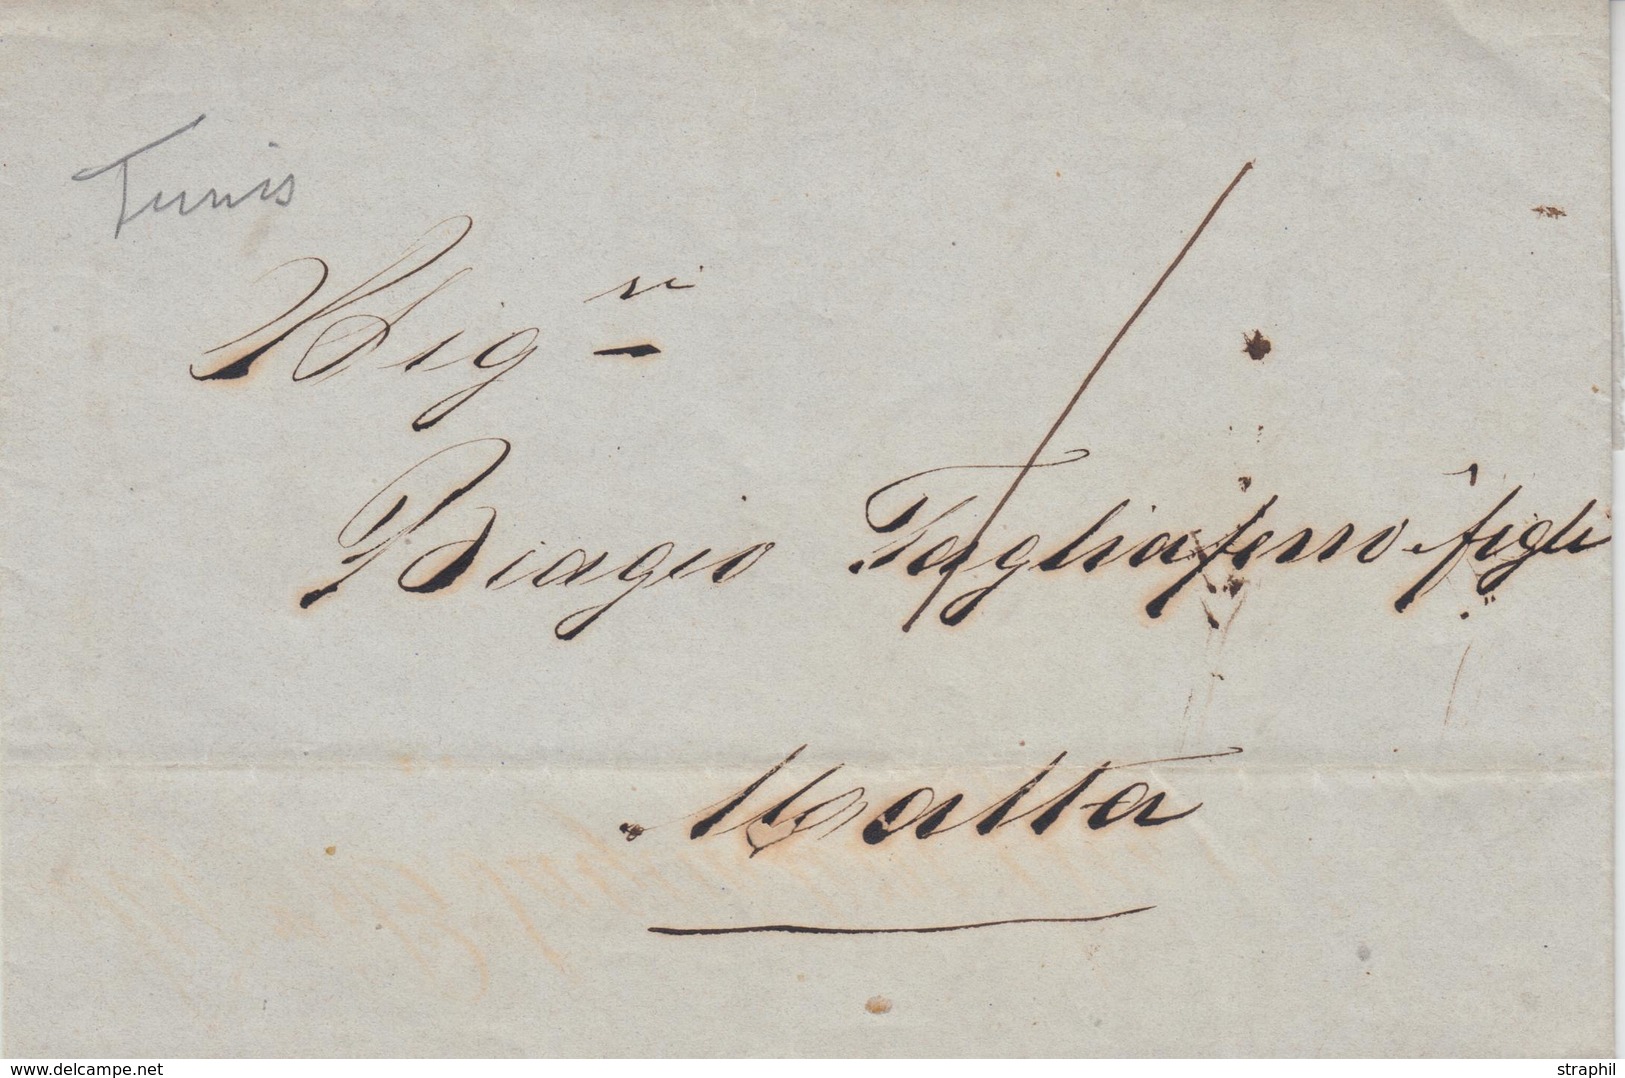 Tunis
Sig.ri
Biagio Tagliaferro figli
Malta
delcampe.net
straphil